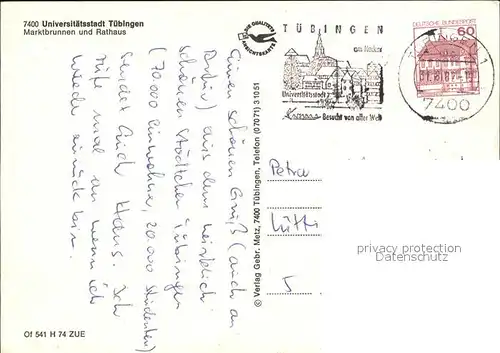 7400 Universitätsstadt Tübingen
Marktbrunnen und Rathaus
DIE QUALITÄTS
ANSICHTSKARTE
TÜBINGEN
am Neckar
Universitätsstadt
Besucht von aller Welt
DEUTSCHE BUNDESPOST
60
1
7400
Einen schönen Gruß (auch an
) aus dem wirklich
schönen Städtchen Tübingen
(70.000 Einwohner, 20.000 Studenten)
sendet Euch Hans. Ich
rufe mal an wenn ich
wieder zurück bin.
© Verlag Gebr. Metz, 7400 Tübingen, Telefon (07071) 31051
Petra
5
privacy protection
Datenschutz
Of 541 H 74 ZUE